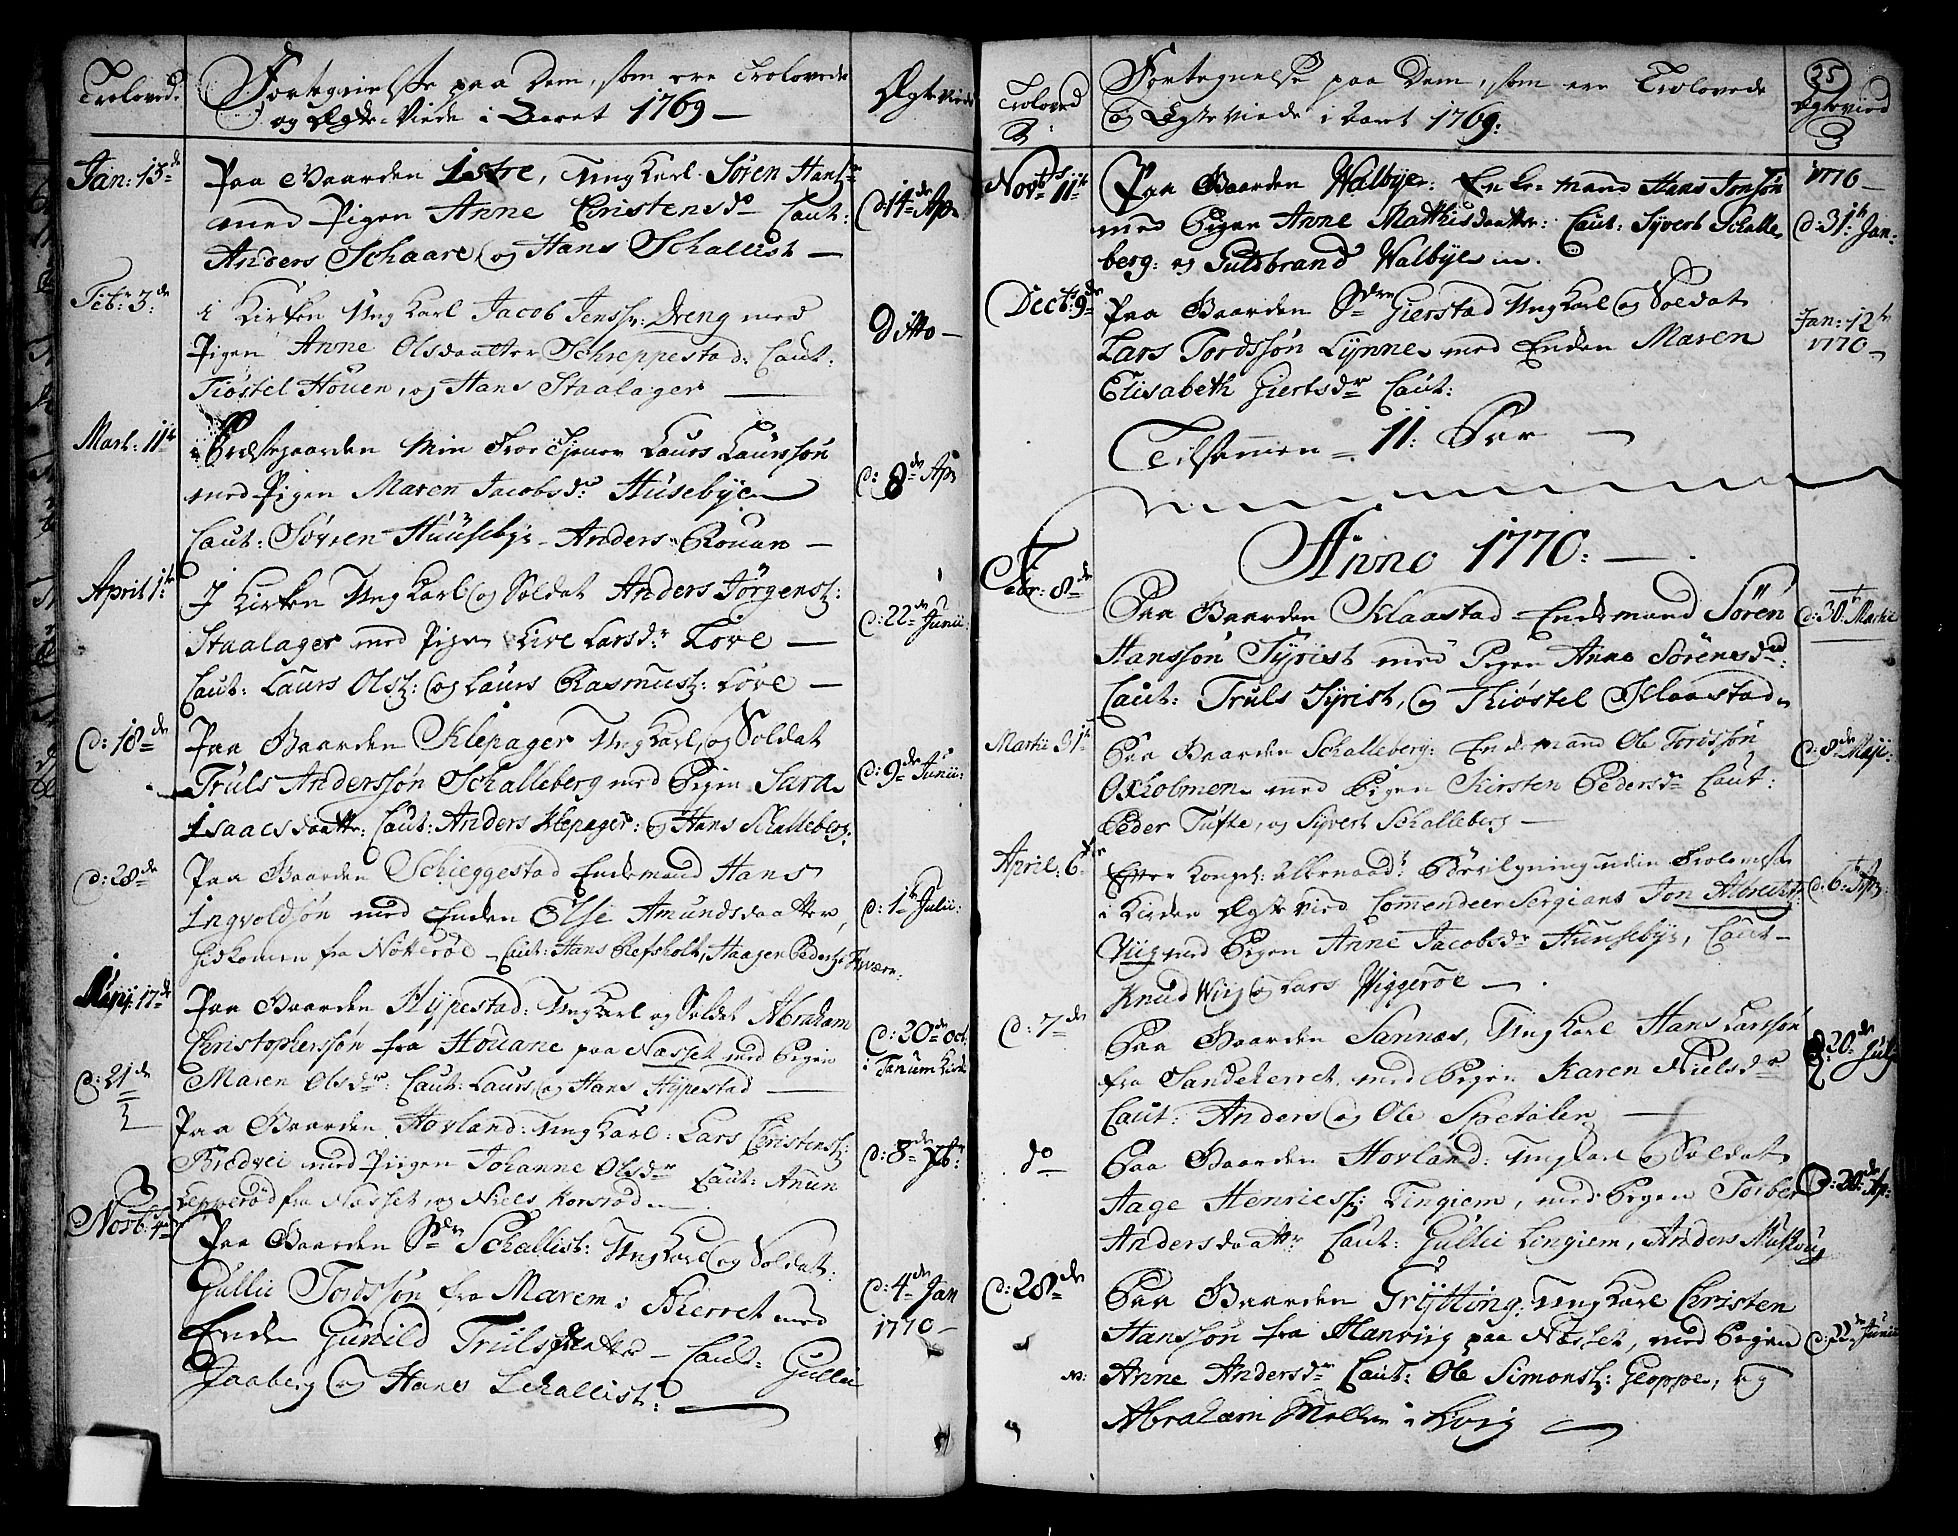 Trolovede
Fortegnelse paa Dem, som ere Trolovede
og Ægte-Viede i Aaret 1769 —
Ægteviede
Jan: 13de
Paa Gaarden Istre, Ung Karl Søren Hans:
med Pigen Anne Christensdr Caut:
Anders Schaare, og Hans Schallist —
d: 14de Apr
Febr: 3de
i Kirken Ung Karl Jacob Jenss: Dreng med
Pigen Anne Olsdaatter Schreppestad: Caut:
Kiøstel Houen, og Hans Staalager —
Ditto —
Mart: 11te
i Præstegaarden Min Tjener Laurs Laurssøn
med Pigen Maren Jacobsdr Husebye
Caut: Søvren Huusebye Anders Rouan —
d: 8de Apr
April 1te
I Kirken Ung Karl og Soldat Anders Jørgens:
Staalager med Pigen Live Larsdr Love —
Caut: Laurs Ols: og Laurs Rasmus: Love —
d: 22de Junii:
d: 18de
Paa Gaarden Klepager Ung Karl og Soldat
Truls Anderssøn Schalleberg med Pigen Sara
Isaacsdaatter: Caut: Anders Klepager: og Hans Schalleberg:
d: 9de Junii:
d: 28de
Paa Gaarden Schieggestad Enkemand Hans
Ingvoldsøn med Enken Else Amundsdaatter,
hidkommen fra Nøtterøe — Caut: Hans Refsholt, Haagen Peders:
d: 1te Julii:
Maji 17de
Paa Gaarden Hypestad: Ung Karl og Soldat Abraham
Christopherssøn fra Houane paa Næsset med Pigen
Maren Olsdr: Caut: Laurs og Hans Hypestad —
d: 20de Oct
i Tanum Kirke
d: 21de
Paa Gaarden Hovland: Ung Karl: Lars Christens:
Bredvei med Piigen Johanne Olsdr Caut: Anun
Lepperød fra Næsset, og Niels Korsrød —
d: 8de Xbr:
Novbr 4de
Paa Gaarden Sdre Schallist: Ung Karl og Soldat:
Gullic Tordssøn fra Marem i Kierret med
Enken Gunild Trulsdaatter — Caut: Gullic
Jaaberg og Hans Schallist: —
d: 4de Jan
1770 —
Trolovede
Fortegnelse paa Dem, som ere Trolovede
og Ægte Viede i Aaret 1769:
25
Ægteviede
Novbr 11te
Paa Gaarden Walbye: Enke-mand Hans Jonsøn
med Pigen Anne Mathisdaatter: Caut: Syvert Schalle-
berg: og Guldbrand Walbye
1770 —
d: 31te Jan:
Decbr 9de
Paa Gaarden Sdre Gierstad Ung Karl og Soldat
Lars Tordssøn Lynne med Enken Maren
Elisabeth Giertsdr Caut:
Jan: 12te
1770 —
Tilsammen = 11: Par —
Anno 1770: —
Febr: 8de
Paa Gaarden Klaastad Enkemand Søren
Hanssøn Syrist med Pigen Anne Sørensdr:
Caut: Truls Syrist, og Kiøstel Klaastad
d: 30te Martii
Martii 31te
Paa Gaarden Schalleberg: Enkemand Ole Tordssøn
Oxholmen med Pigen Kirsten Pedersdr Caut:
Peder Tufte, og Syvert Schalleberg —
d: 8de Maji:
April: 6te
Efter Kongel: allernaadr Bevilgning uden Trolovelse
i Kirken Ægteviet Commendeer Sergiant Jon Albrecht:
Viig med Pigen Anne Jacobsdr Huusebye, Caut —
Knud Wiig og Lars Wiggeröe —
d: 6te
d: 7de
Paa Gaarden Sannæs, Ung Karl Hans Larssøn
fra Sandeherret med Pigen Karen Nielsdr
Caut: Anders og Ole Spetalen —
d: 20de July
do
Paa Gaarden Hovland: Ung Karl og Soldat
Aage Henrics: Lingiem, med Pigen Torber
Andersdaatr Caut: Gullic Lingiem, Anders
d: 20de
d: 28de
Paa Gaarden Grytting: Ung Karl Christen
Hanssøn fra Hanviig paa Næsset, med Pigen
Anne Andersdr Caut: Ole Simons: Gloppe, og
Abraham Møller i Kvig —
d: 22de Junii